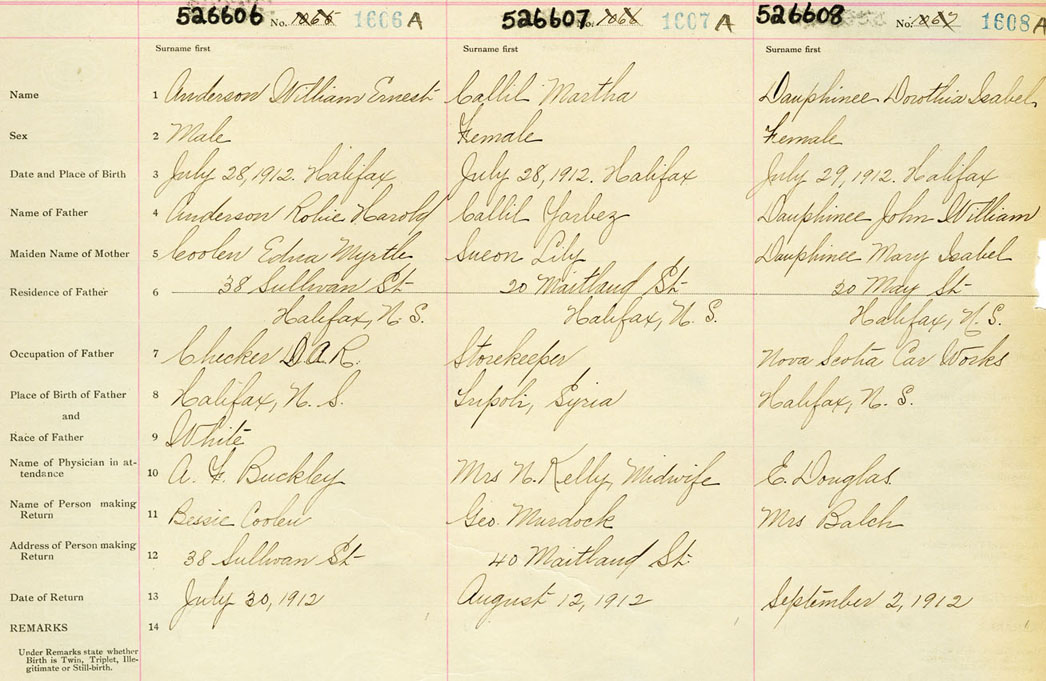 526606 No. 1065 1606 A 526607 No. 1066 1607 A 526608 No. 1067 1608 A
Surname first Surname first Surname first
Name 1 Anderson William Ernest Callil Martha Dauphinee Dorothia Isabel
Sex 2 Male Female Female
Date and Place of Birth 3 July 28, 1912. Halifax July 28, 1912. Halifax July 29, 1912. Halifax
Name of Father 4 Anderson Robie Harold Callil Yarbez Dauphinee John William
Maiden Name of Mother 5 Coolen Edna Myrtle Sueon Lily Dauphinee Mary Isabel
Residence of Father 6 38 Sullivan St 20 Maitland St 20 May St
Halifax, N. S. Halifax, N. S. Halifax, N. S.
Occupation of Father 7 Checker D A R. Storekeeper Nova Scotia Car Works
Place of Birth of Father 8 Halifax, N. S. Tripoli, Syria Halifax, N. S.
and
Race of Father 9 White
Name of Physician in at-
tendance 10 A. F. Buckley Mrs N. Kelly, Midwife E. Douglas
Name of Person making
Return 11 Bessie Coolen Geo. Murdock Mrs Balch
Address of Person making
Return 12 38 Sullivan St 40 Maitland St
Date of Return 13 July 30, 1912 August 12, 1912 September 2, 1912
REMARKS 14
Under Remarks state whether
Birth is Twin, Triplet, Ille-
gitimate or Still-birth.